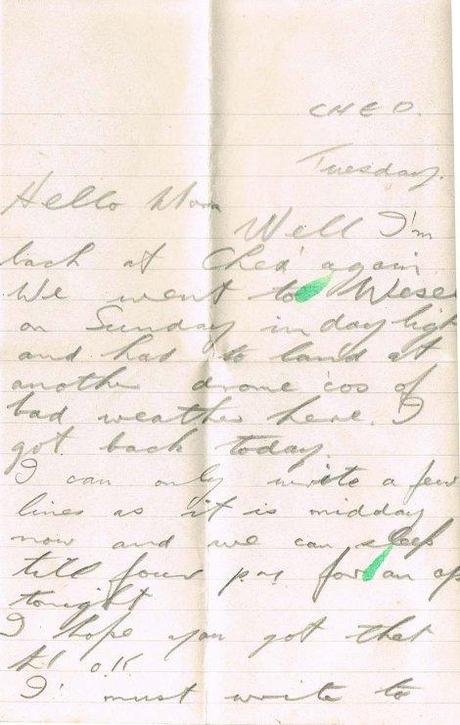 CHED.
Tuesday.
Hello Mom
Well I'm
back at Ched' again
We went to Wesel
on Sunday in day ligh
and had to land at
another drome 'cos of
bad weather here. I
got back today.
I can only write a few
lines as it is midday
now and we can sleep
till four for an op
tonight
I hope you got that
O.K
I must write to